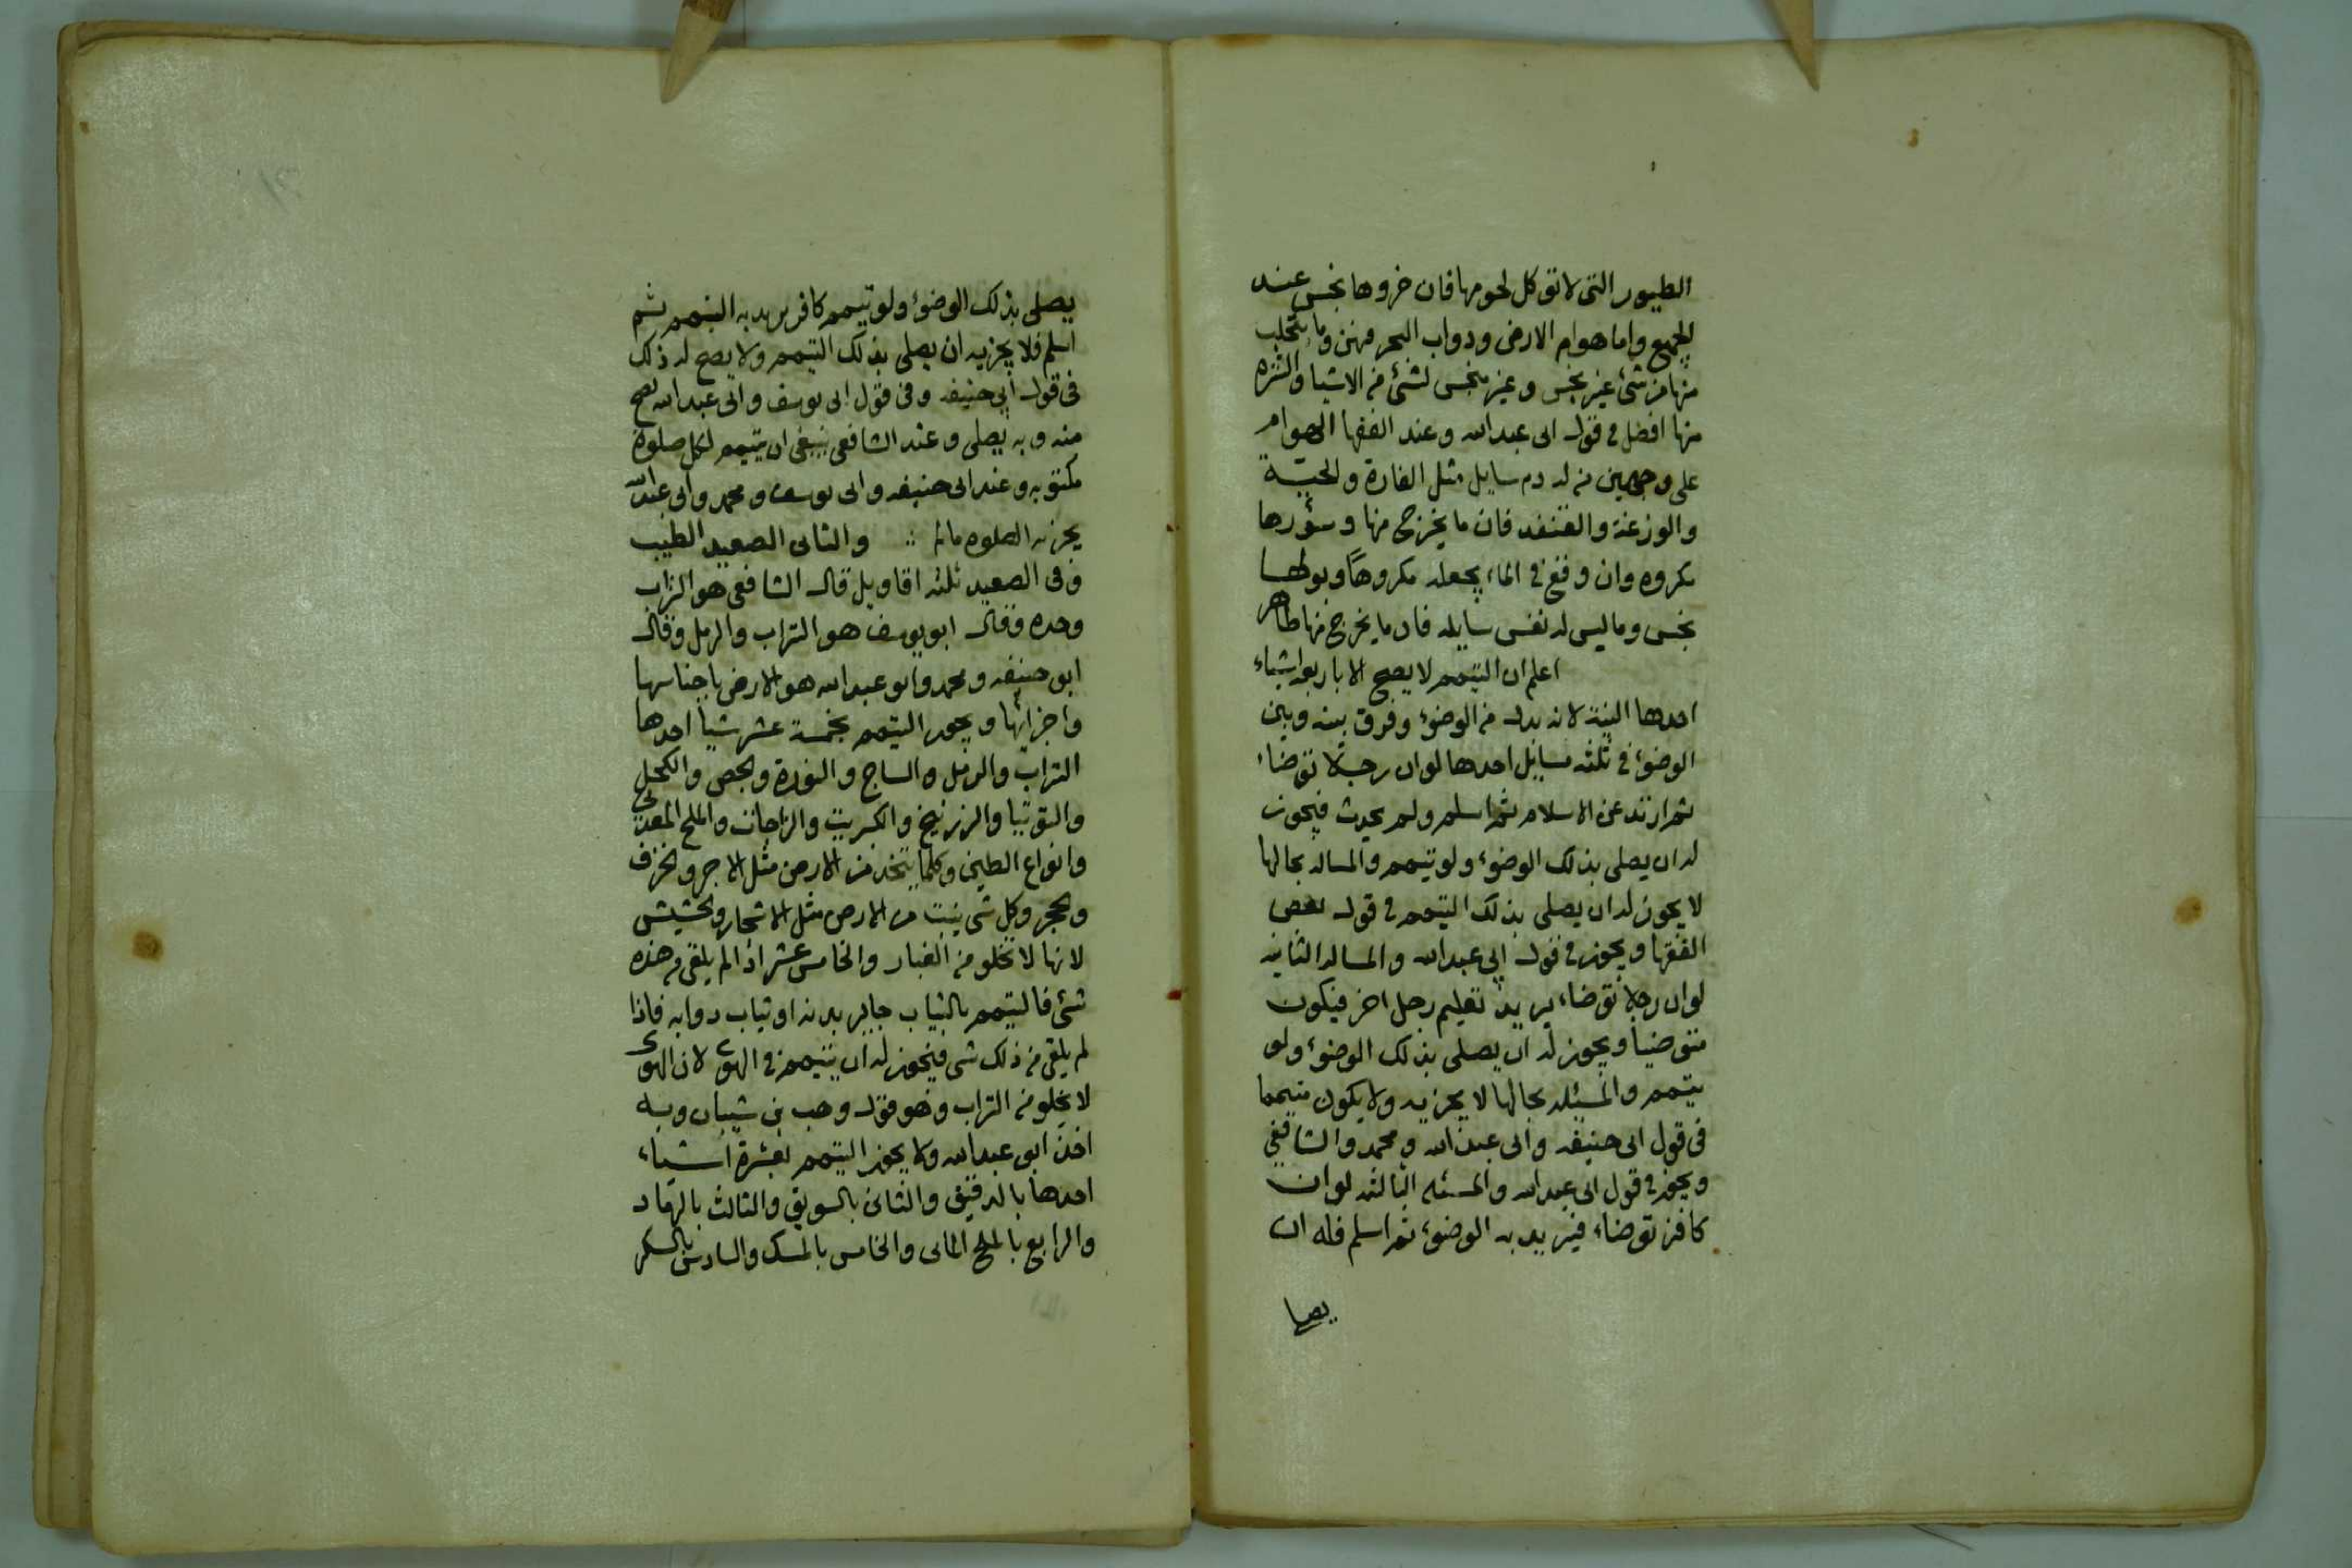 الطيور التى لا تؤكل لحومها فان خروها نجس عند
الجميع واما هوام الارض ودواب البحر فهن وما يتحلب
منها من شئ غير نجس وغير منجس لشئ من الاشيا والتنزه
منها افضل في قول ابى عبدالله وعند الفقها الهوام
على وجهين من له دم سايل مثل الفارة والحيّة
والوزغة والقنفد فان ما يخرج منها وسؤرها
مكروه وان وقع في الماء يجعله مكروهاً وبولها
نجس وما ليس له نفس سايله فان ما يخرج منها طاهر
اعلم ان التيمم لا يصح الا باربعة اشياء
احدها النية لانه بدل من الوضوء وفرق بينه وبين
الوضوء في ثلثه مسايل احدها لو ان رجلا توضاء
ثم ارتد عن الاسلام ثم اسلم ولم يحدث فيجوز
له ان يصلى بذلك الوضوء ولو تيمم والمساله بحالها
لا يجوز له ان يصلى بذلك التيمم في قول بعض
الفقها ويجوز في قول ابي عبدالله والمساله الثانيه
لو ان رجلا توضاء يريد تعليم رجل اخر فيكون
متوضيا ويجوز له ان يصلى بذلك الوضوء ولو
يتيمم والمسئله بحالها لا يجزيه ولا يكون متيمما
فى قول ابى حنيفه وابى عبدالله ومحمد والشافعي
ويجوز في قول ابى عبدالله والمسئله الثالثه لو ان
كافر توضاء فيريد به الوضوء ثم اسلم فله ان
يصلى
يصلى بذلك الوضوء ولو تيمم كافر يريد به التيمم ثم
اسلم فلا يجزيه ان يصلى بذلك التيمم ولا يصح له ذلك
فى قول أبي حنيفه وفى قول ابى يوسف وابى عبدالله يصح
منه وبه يصلى وعند الشافعى ينبغى ان يتيمم لكل صلوة
مكتوبه وعند ابى حنيفه وابى يوسف ومحمد وابى عبدالله
يجزيه الصلوه مالم ∴ والثانى الصعيد الطيب
وفى الصعيد ثلثه اقاويل قال الشافعى هو التراب
وحده وقال ابو يوسف هو التراب والرمل وقال
ابو حنيفه ومحمد وابو عبدالله هو الارض باجناسها
واجزائها ويجوز التيمم بخمسة عشر شيا احدها
التراب والرمل والساج والنورة والجص والكحل
والتوتيا والزرنيخ والكبريت والزاجات والملح المعدني
وانواع الطين وكلما يتخذ من الارض مثل الاجر والخزف
والحجر وكل شى ينبت من الارض مثل الاشجار والحشيش
لانها لا تخلو من الغبار والخامس عشر اذا لم يلقى من هذه
شئ فالتيمم بالثياب جايز بدنه او ثياب دوابه فاذا
لم يلقى من ذلك شى فيجوز له ان يتيمم في الهوى لان الهوى
لا يخلو من التراب وهو قول وهب بن شيبان وبه
اخذ ابو عبدالله ولا يجوز التيمم بعشرة اشياء
احدها بالدقيق والثانى بالسويق والثالث بالرماد
والرابع بالملح المائى والخامس بالمسك والسادس بالسكر